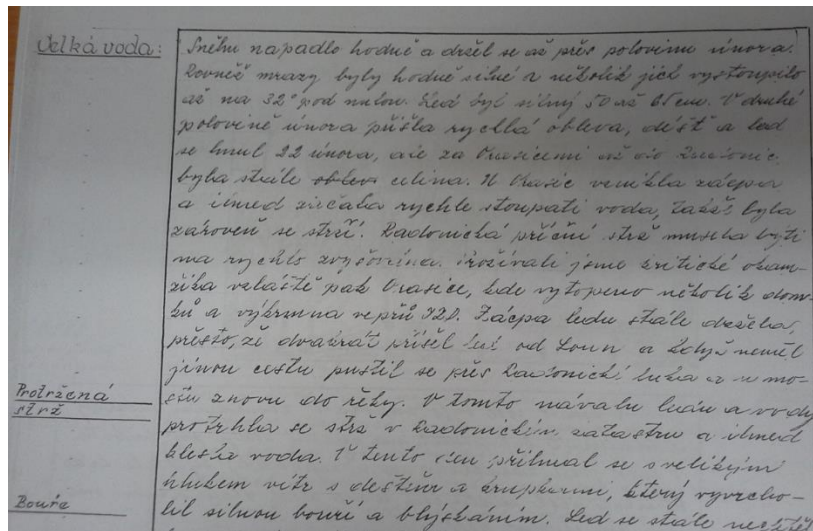 Velká voda:
Sněhu napadlo hodně a držel se až přes polovinu února.
Rovněž mrazy byly hodně silné a několik jich vystoupilo
až na 32° pod nulou. Led byl silný 50 až 65 cm. V druhé
polovině února přišla rychlá obleva, déšť a led
se hnul 22 února, ale za Orasicemi až do Radonic
byla stále celina. U Orasic vznikla zácpa
a ihned začala rychle stoupati voda, takže byla
zároveň se strží. Radonická příční strž musela býti
na rychlo zvyšována. Prožívali jsme kritické okam-
žiky zvláště pak Orasice, kde vytopeno několik dom-
ků a výkrmna vepřů JZD. Zácpa ledu stále držela,
přesto, že dvakrát přišel led od Loun a když neměl
jinou cestu pustil se přes Radonická luka a u mo-
stu znovu do řeky. V tomto návalu ledu a vody
Protržená
strž
protrhla se strž v Radonickém katastru a ihned
klesla voda. V tento den přihnal se s velikým
hlukem vítr s deštěm a krupkami, který vyvrcho-
Bouře
lil silnou bouří a blýskáním. Led se stále